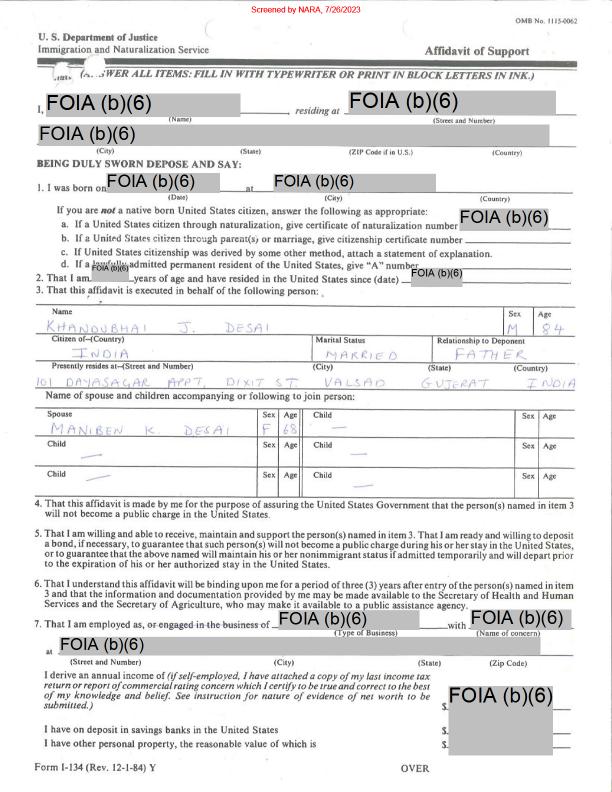 Screened by NARA, 7/26/2023
OMB No. 1115-0062
U. S. Department of Justice
Immigration and Naturalization Service
Affidavit of Support
(ANSWER ALL ITEMS: FILL IN WITH TYPEWRITER OR PRINT IN BLOCK LETTERS IN INK.)
I, FOIA (b)(6), residing at FOIA (b)(6)
(Name) (Street and Number)
FOIA (b)(6)
(City) (State) (ZIP Code if in U.S.) (Country)
BEING DULY SWORN DEPOSE AND SAY:
1. I was born on FOIA (b)(6) at FOIA (b)(6)
(Date) (City) (Country)
If you are not a native born United States citizen, answer the following as appropriate:
a. If a United States citizen through naturalization, give certificate of naturalization number FOIA (b)(6)
b. If a United States citizen through parent(s) or marriage, give citizenship certificate number
c. If United States citizenship was derived by some other method, attach a statement of explanation.
d. If a lawfully admitted permanent resident of the United States, give "A" number
2. That I am FOIA (b)(6) years of age and have resided in the United States since (date) FOIA (b)(6)
3. That this affidavit is executed in behalf of the following person:
Name Sex Age
KHANDUBHAI J. DESAI M 84
Citizen of–(Country) Marital Status Relationship to Deponent
INDIA MARRIED FATHER
Presently resides at–(Street and Number) (City) (State) (Country)
101 DAYASAGAR APPT, DIXIT ST. VALSAD GUJERAT INDIA
Name of spouse and children accompanying or following to join person:
Spouse Sex Age Child Sex Age
MANIBEN K. DESAI F 68 —
Child Sex Age Child Sex Age
— —
Child Sex Age Child Sex Age
— —
4. That this affidavit is made by me for the purpose of assuring the United States Government that the person(s) named in item 3
will not become a public charge in the United States.
5. That I am willing and able to receive, maintain and support the person(s) named in item 3. That I am ready and willing to deposit
a bond, if necessary, to guarantee that such person(s) will not become a public charge during his or her stay in the United States,
or to guarantee that the above named will maintain his or her nonimmigrant status if admitted temporarily and will depart prior
to the expiration of his or her authorized stay in the United States.
6. That I understand this affidavit will be binding upon me for a period of three (3) years after entry of the person(s) named in item
3 and that the information and documentation provided by me may be made available to the Secretary of Health and Human
Services and the Secretary of Agriculture, who may make it available to a public assistance agency.
7. That I am employed as, or engaged in the business of FOIA (b)(6) with FOIA (b)(6)
(Type of Business) (Name of concern)
at FOIA (b)(6)
(Street and Number) (City) (State) (Zip Code)
I derive an annual income of (if self-employed, I have attached a copy of my last income tax
return or report of commercial rating concern which I certify to be true and correct to the best
of my knowledge and belief. See instruction for nature of evidence of net worth to be
submitted.) $ FOIA (b)(6)
I have on deposit in savings banks in the United States $
I have other personal property, the reasonable value of which is $
Form I-134 (Rev. 12-1-84) Y OVER